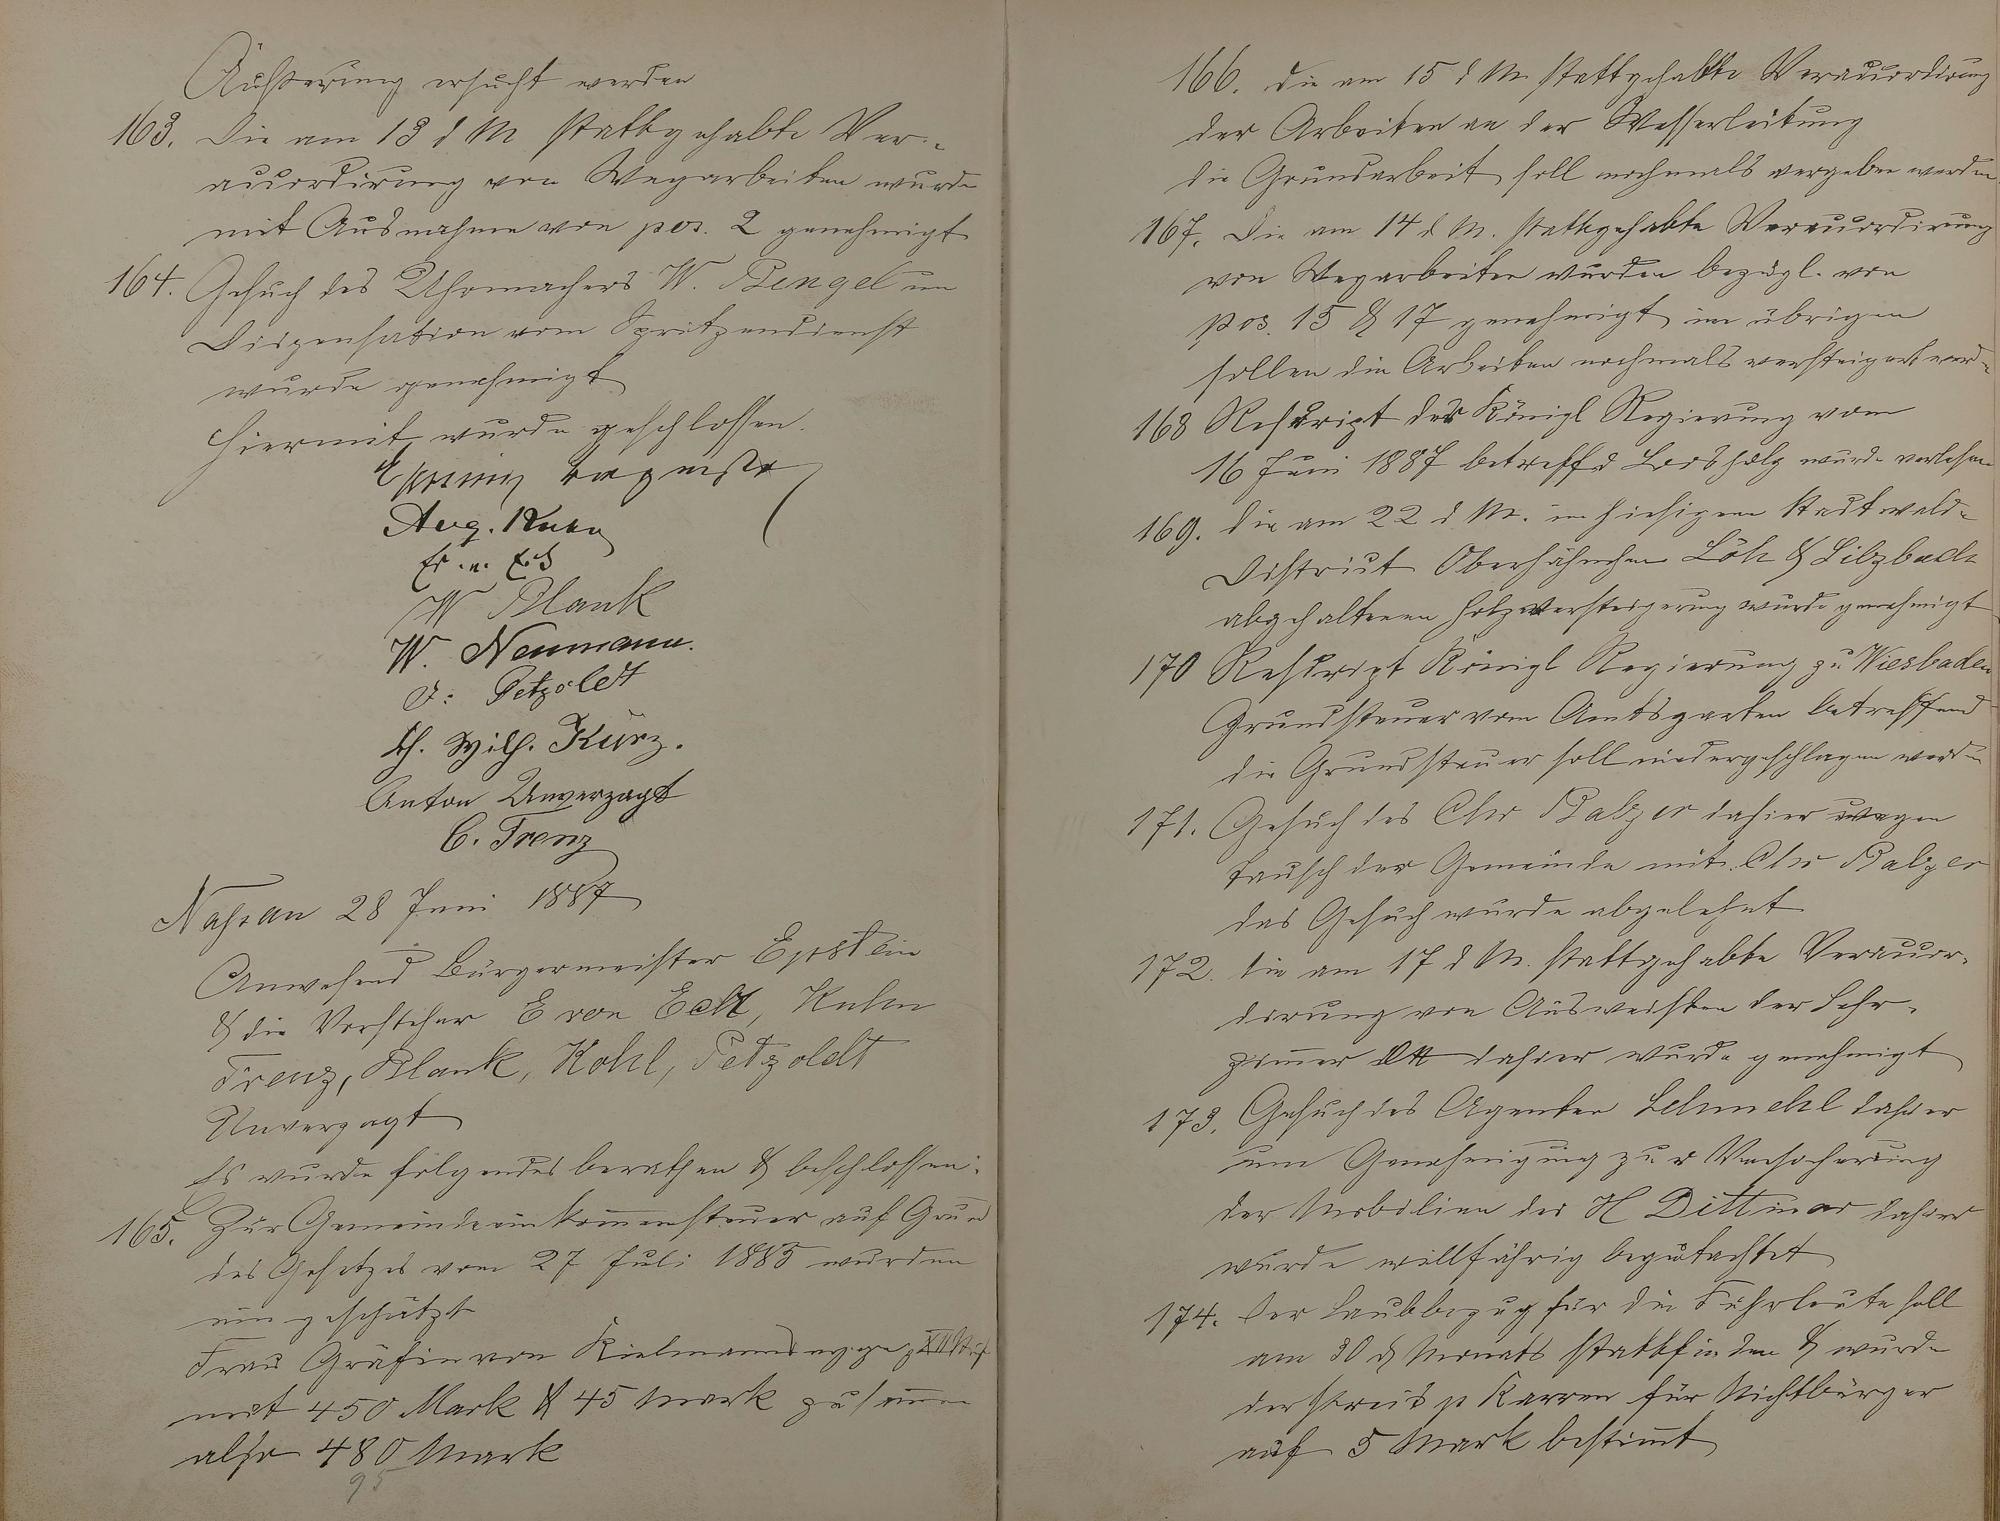 Äußerung ersucht werden
163. Die am 13 d M stattgehabte Ver-
accordirung von Wegarbeiten wurde
mit Ausnahme von pos. 2 genehmigt
164. Gesuch des Uhrmachers W. Bengel um
Dispensation vom Spritzendienst
wurde genehmigt
Hiermit wurde geschlossen.
Aug. Kuhn
E. v. Eck
W Blank
W. Neumann.
J: Petzoldt
Ch. Wilh. Kurz.
Anton Unverzagt
C. Frenz
Nassau 28 Juni 1887
Anwesend Bürgermeister Epstein
& die Vorsteher E von Eck, Kuhn
Frenz, Blank, Kohl, Petzoldt
Unverzagt
Es wurde folgendes berathen & beschlossen:
165. Zur Gemeindeeinkommensteuer auf Grund
des Gesetzes vom 27 Juli 1885 wurden
eingeschätzt
Frau Gräfin von Kielmannsegge z XII Stuf
mit 450 Mark & 45 Mark zusammen
also 480 Mark
95
166. Die am 15 d M stattgehabte Veraccordirung
der Arbeiten an der Wasserleitung
die Grundarbeit soll nochmals vergeben werden
167. Die am 14 d M. stattgehabte Veraccordirung
von Wegarbeiten wurden bezügl. von
pos. 15 & 17 genehmigt im übrigen
sollen die Arbeiten nochmals versteigert werd-
168 Rescript der Königl Regierung vom
16 Juni 1887 betreffd Loosholz wurde verlesen
169. Die am 22 d M. im hiesigen Stadtwald-
District Oberhähnchen Löh & Silzbach
abgehaltenen Holzversteigerung wurde genehmigt
170 Rescript Königl Regierung zu Wiesbaden
Grundsteuer vom Amtsgarten betreffend
die Grundsteuer soll niedergeschlagen werden
171. Gesuch des Chr Balzer dahier wegen
Tausch der Gemeinde mit Chr Balzer
das Gesuch wurde abgelehnt
172. Die am 17 d M. stattgehabte Veraccor-
dirung von Ausweißen der Lehr-
zimmer dahier wurde genehmigt
173. Gesuch des Agenten dahier
um Genehmigung zur Versicherung
der Mobilien des H Dittmar dahier
wurde willfährig begutachtet
174. Der Laubbezug für die Fuhrleute soll
am 30 d Monats stattfinden & wurde
der Preis p Karren für Nichtbürger
auf 5 Mark bestimmt